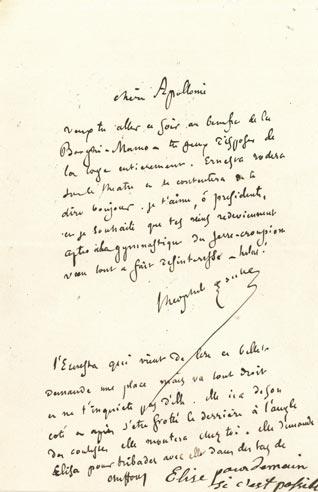 chère Apollonie
veux tu aller ce soir au benefice de la
Borghi-Mamo - tu peux disposer de
la loge entierement. Ernesta rodera
sur le theatre et se contentera de te
dire bonjour. je t'aime, ô presidente,
et je souhaite que tes reins redeviennent
apte à la gymnastique du serre-croupion
vœu tout a fait desinteressé - helas!
Theophile Gautier
l'Ernesta qui vient de lire ce billet
demande une place mais va tout droit
et ne t'inquiete pas d'elle. elle ira de son
coté et après s'etre frotté le derrière à l'angle
des coulisses elle montera chez toi. elle demande
Elisa pour tribader avec elle dans des tas de
Elise pour demain
si c'est possible